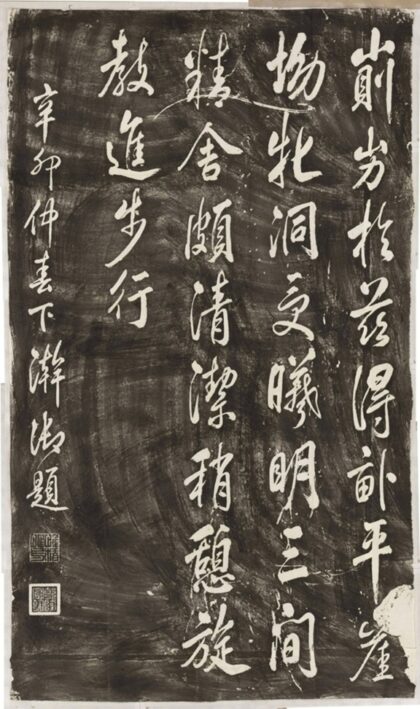 崱屴於茲得畝平崖
坳牝洞受曦明三間
精舍頗清潔稍憩旋
教進步行
辛卯仲春下澣御題